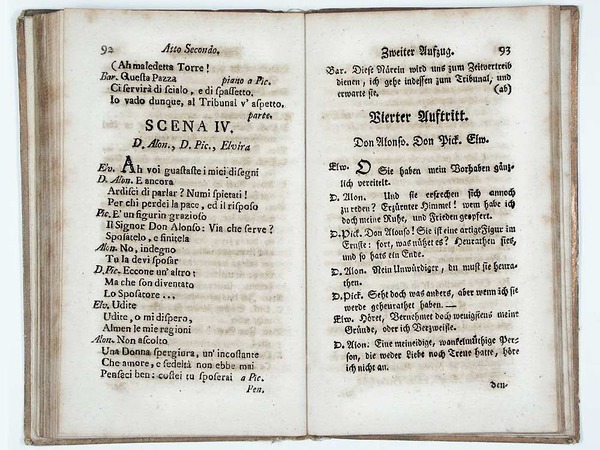 92 Atto Secondo.
(Ah maledetta Torre!
Bar. Questa Pazza piano a Pic.
Ci servirà di scialo, e di spassetto.
Io vado dunque, al Tribunal v' aspetto.
parte.
SCENA IV.
D. Alon., D. Pic., Elvira
Elv. Ah voi guastaste i miei disegni
D. Alon. E ancora
Ardisci di parlar? Numi spietati!
Per chi perdei la pace, ed il risposo
Pic. E' un figurin grazioso
Il Signor Don Alonso: Via che serve?
Sposatelo, e finitela
Alon. No, indegno
Tu la devi sposar
D. Pic. Eccone un' altro:
Ma che son diventato
Lo Spositore ...
Elv. Udite
Udite, o mi dispero,
Almen le mie regioni
Alon. Non ascolto
Una Donna spergiura, un' incostante
Che amore, e fedeltà non ebbe mai
Pensėci ben: costei tu sposerai a Pic.
Pen.
Zweiter Aufzug. 93
Bar. Diese Närrin wird uns zum Zeitvertreib
dienen, ich gehe indessen zum Tribunal, und
erwarte sie. (ab)
Vierter Auftritt.
Don Alonso. Don Pick. Elw.
Elw. O Sie haben mein Vorhaben gänz-
lich vereitelt.
D. Alon. Und sie erfrechen sich annoch
zu reden? Erzürnter Himmel! wem habe ich
doch meine Ruhe, und Frieden geopfert.
D. Pick. Don Alonso! Sie ist eine artige Figur im
Ernste: fort, was nützet es? Heurathen sies,
und so hats ein Ende.
D. Alon. Nein Unwürdiger, du must sie heura-
then.
D. Pick. Seht doch was anders, aber wenn ich sie
werde geheurathet haben. —
Elw. Höret, Vernehmet doch wenigstens meine
Gründe, oder ich Verzweifle.
D. Alon. Eine meineidige, wankelmüthige Per-
son, die weder Liebe noch Treue hatte, höre
ich nicht an.
den-